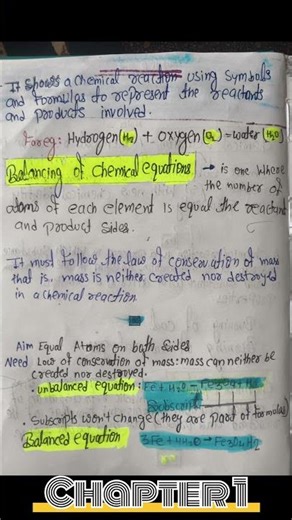 - It shows a chemical reaction using symbols
and formulas to represent the reactants
and products involved.
Foreg: Hydrogen(H2) + oxygen(O2) = water(H2O)
Balancing of chemical equations → is one where
the number of
atoms of each element is equal the reactant
and product sides.
It must follow the law of conservation of mass
that is.. mass is neither created nor destroyed
in a chemical reaction
Aim Equal Atoms on both sides
Need Low of conservation of mass: mass can neither be
created nor destroyed.
• unbalanced equation: Fe + H2O → Fe3O4 + H2
Subscripts
• Subscripts won't change (they are part of formulas)
Balanced equation 3Fe + 4H2O → Fe3O4 H2
CHAPTER 1